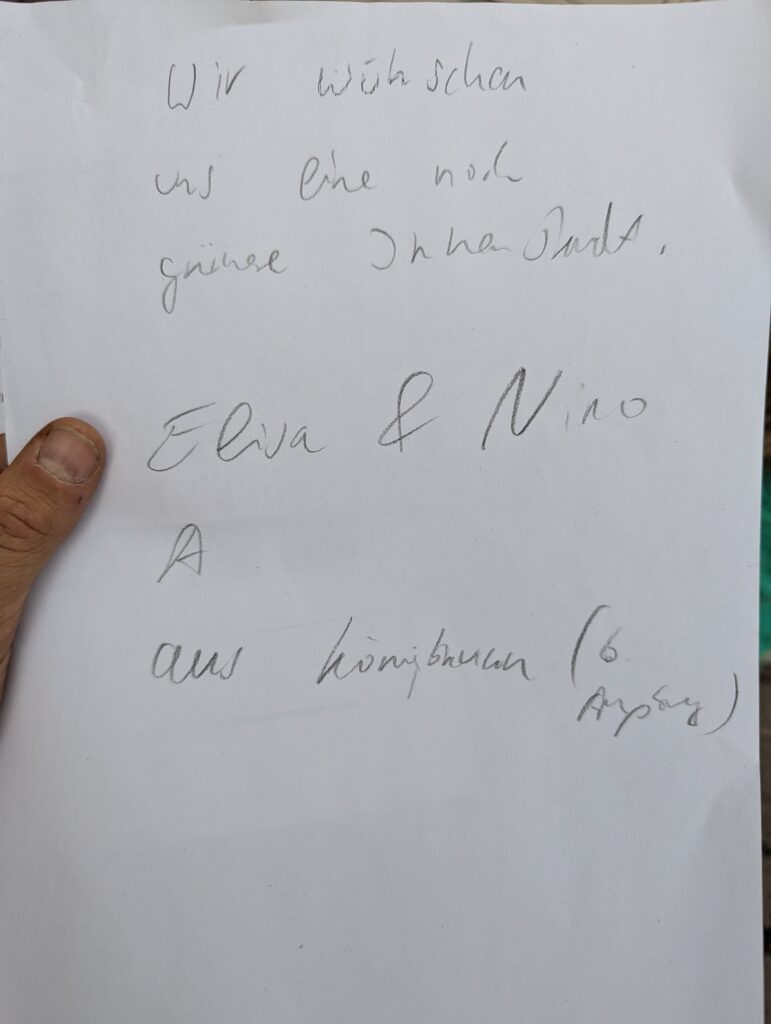 Wir wünschen
uns eine noch
grünere Innenstadt.
Elisa & Nino
A
aus Königbrunn (b
Augsburg)